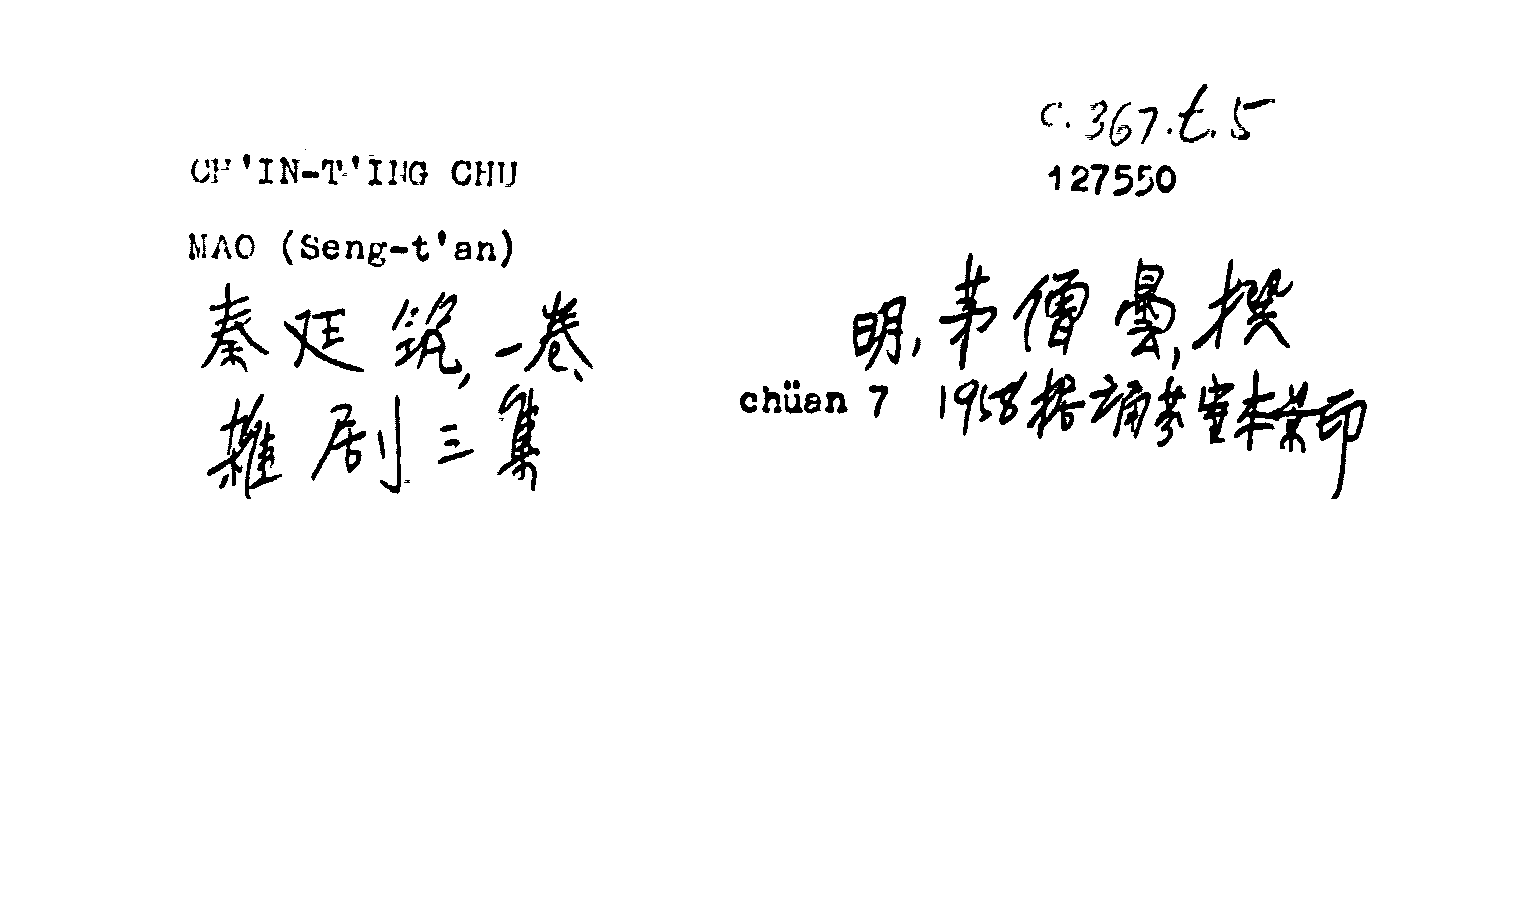 c.367.t.5
127550
CH'IN-T'ING CHU
MAO (Seng-t'an)
秦廷筑, 一卷、 明, 茅僧曇, 撰
雜剧三集 chüan 7 1958 据誦芬室本景印